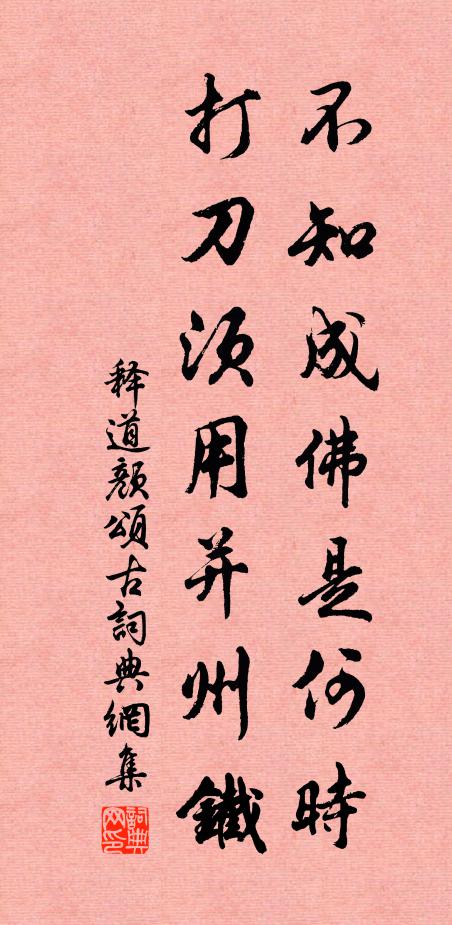 不知成佛是何時
打刀須用并州鐵
释道颜頌古詞典網集
詞典网印